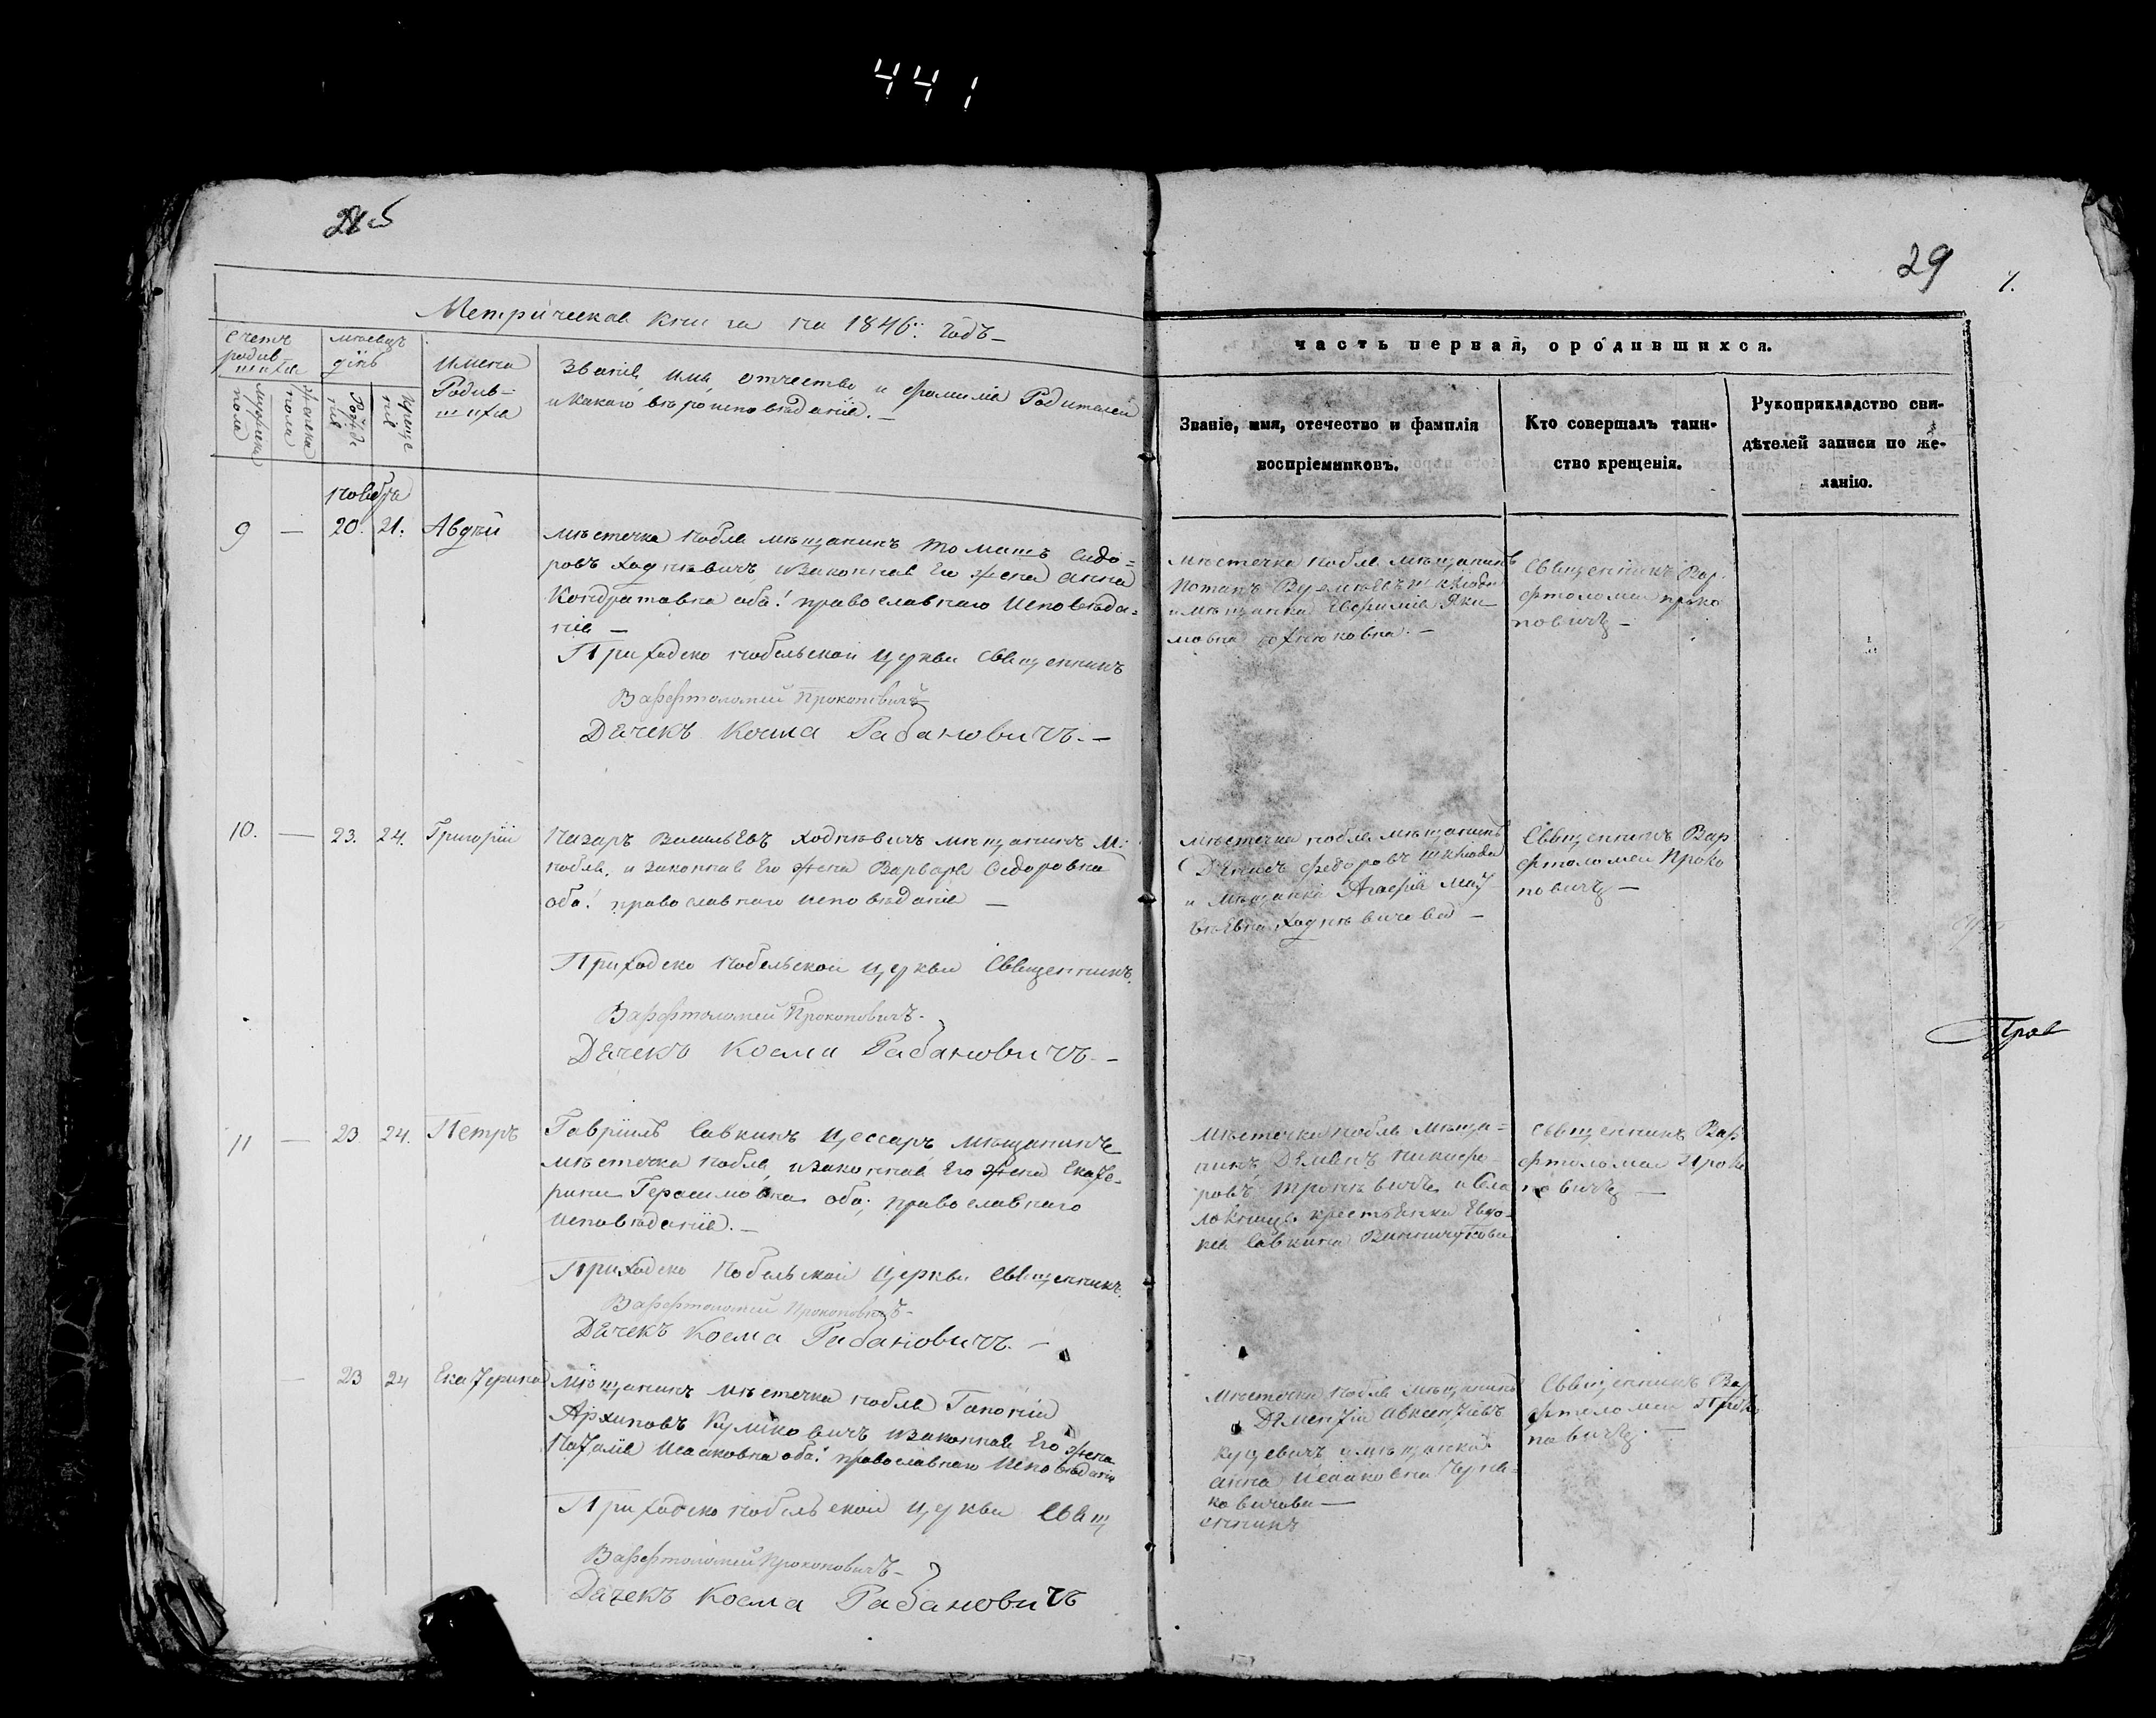 441
29
Метрическая книга на 1846: годъ
часть первая, ородившихся.
счетъ родив-шихся
мѣсяцъ день
имена Родив-шихся
Званіе, имя, отчество и фамилія Родителей
и какаго вѣроисповѣданія. —
мужска пола
женска пола
Рожде нія
креще нія
Званіе, имя, отчество и фамилія
воспріемниковъ.
Кто совершалъ таин-
ство крещенія.
Рукоприкладство сви-
дѣтелей записи по же-
ланію.
ноября
9 — 20. 21. Авдѣй
мѣстечка нобля мѣщанинъ томашъ Сидо=
ровъ Ходнѣвичъ изаконная Его жена анна
Кондратовна оба: православнаго исповѣда-
нія —
Приходско нобельской церкви священникъ
Варфтоломей Прокоповичъ
Дячекъ Косма Рабановичъ. —
мѣстечка нобля мѣщанинъ
имѣщанка Евфимія Яки
мовна
Священникъ Вар-
фтоломеи проко
повичъ —
10. — 23. 24. Григорій
Назаръ Васильевъ Ходнѣвичъ мѣщанинъ м:
нобля, и законная Его жена Варвара Сидоровна
оба: православнаго исповѣданія —
Приходско нобельской церкви Священникъ
Варфтоломей Прокоповичъ.
Дячекъ Косма Рабановичъ. —
мѣстечка нобля мѣщанинъ
федоровъ шклюда
и мѣщанка Агафія мат
вѣевна Ходнѣвичова —
Священникъ Вар
фтоломеи Проко
повичъ —
11 — 23 24. Петръ
Гавріилъ Савкинъ Цессаръ мѣщанинъ
мѣстечка нобля, изаконная Его жена Екате-
рина Герасимовна оба: православнаго
исповѣданія. —
Приходско Нобельской Церкви священникъ
Варфтоломей Прокоповичъ-
Дячекъ Косма Рабановичъ. —
мѣстечка нобля мѣща=
нинъ никифо
ровъ
крестьянка Евдо-
Савкина
священникъ Вар
фтоломеи Проко
повичъ —
— 23 24 Екатерина
мѣщанинъ мѣстечка нобля Гапоній
Архиповъ Куликовичъ изаконная Его жена
Наталія Исаковна оба: православнаго исповѣданія
Приходско нобельской церкви Свящ
Варфтоломей Прокоповичъ-
Дячекъ Косма Рабановичъ
мѣстечка нобля мѣщанинъ
Дементій авксентіевъ
куцевичъ имѣщанка
анна Исааковна
ковичова —
енникъ
Священникъ Вар
фтоломеи Проко
повичъ. —